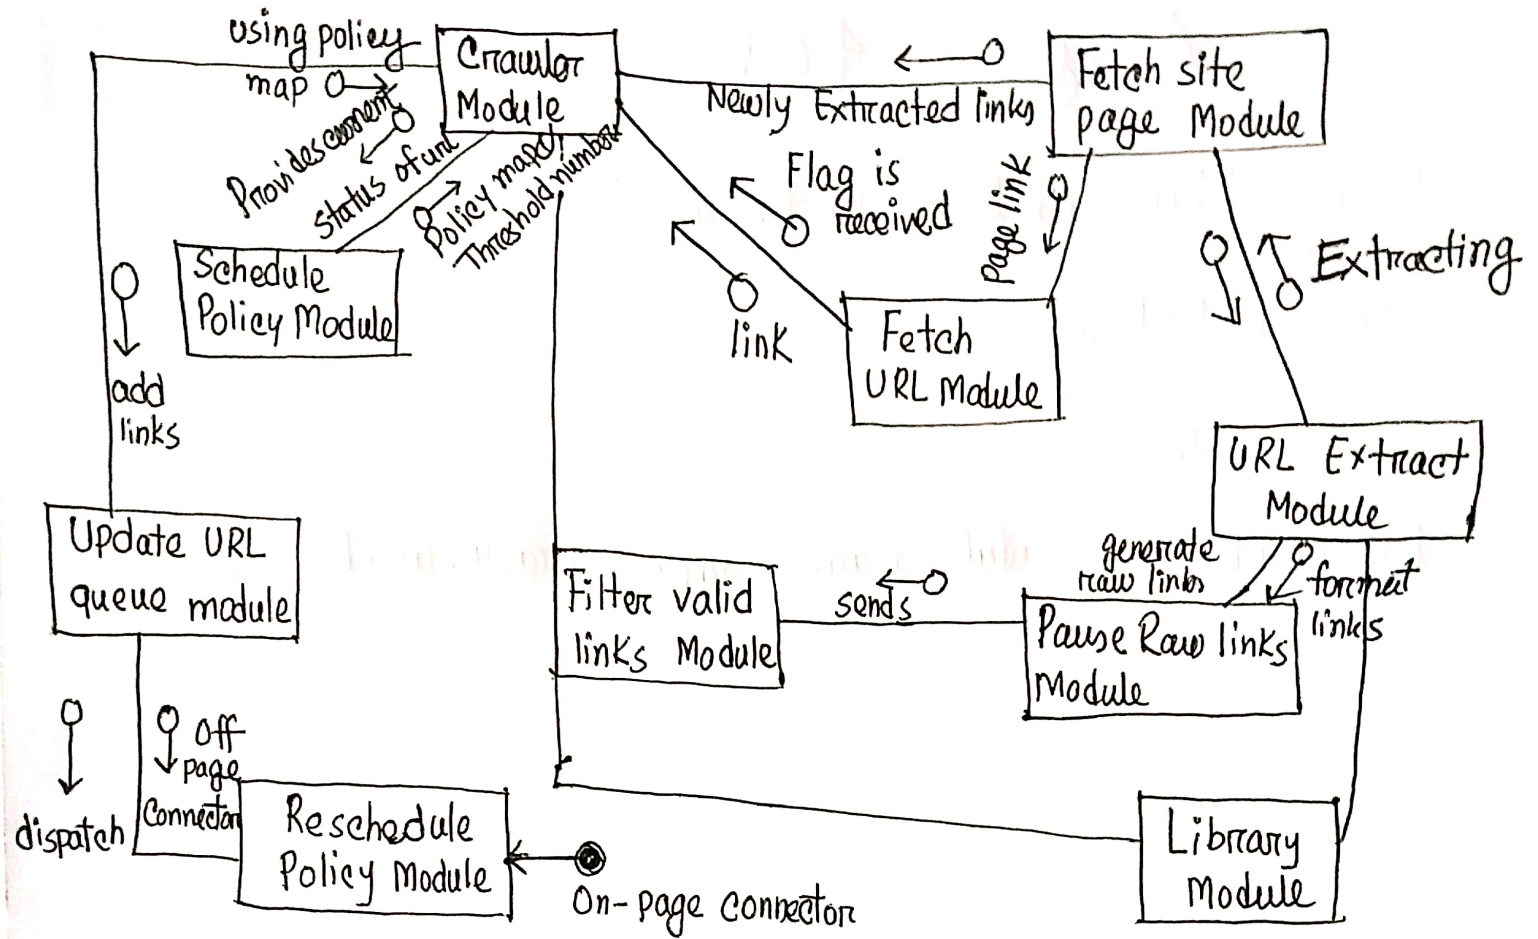 using policy
map
Crawler
Module
Fetch site
page Module
Newly Extracted links
Provides current
status of url
Policy map
Threshold number
Flag is
received
Page link
Extracting
link
Schedule
Policy Module
Fetch
URL Module
add
links
URL Extract
Module
Update URL
queue module
generate
raw links
format
links
Filter valid
links Module
sends
Pause Raw links
Module
Off
page
Connector
dispatch
Reschedule
Policy Module
On-page connector
Library
Module